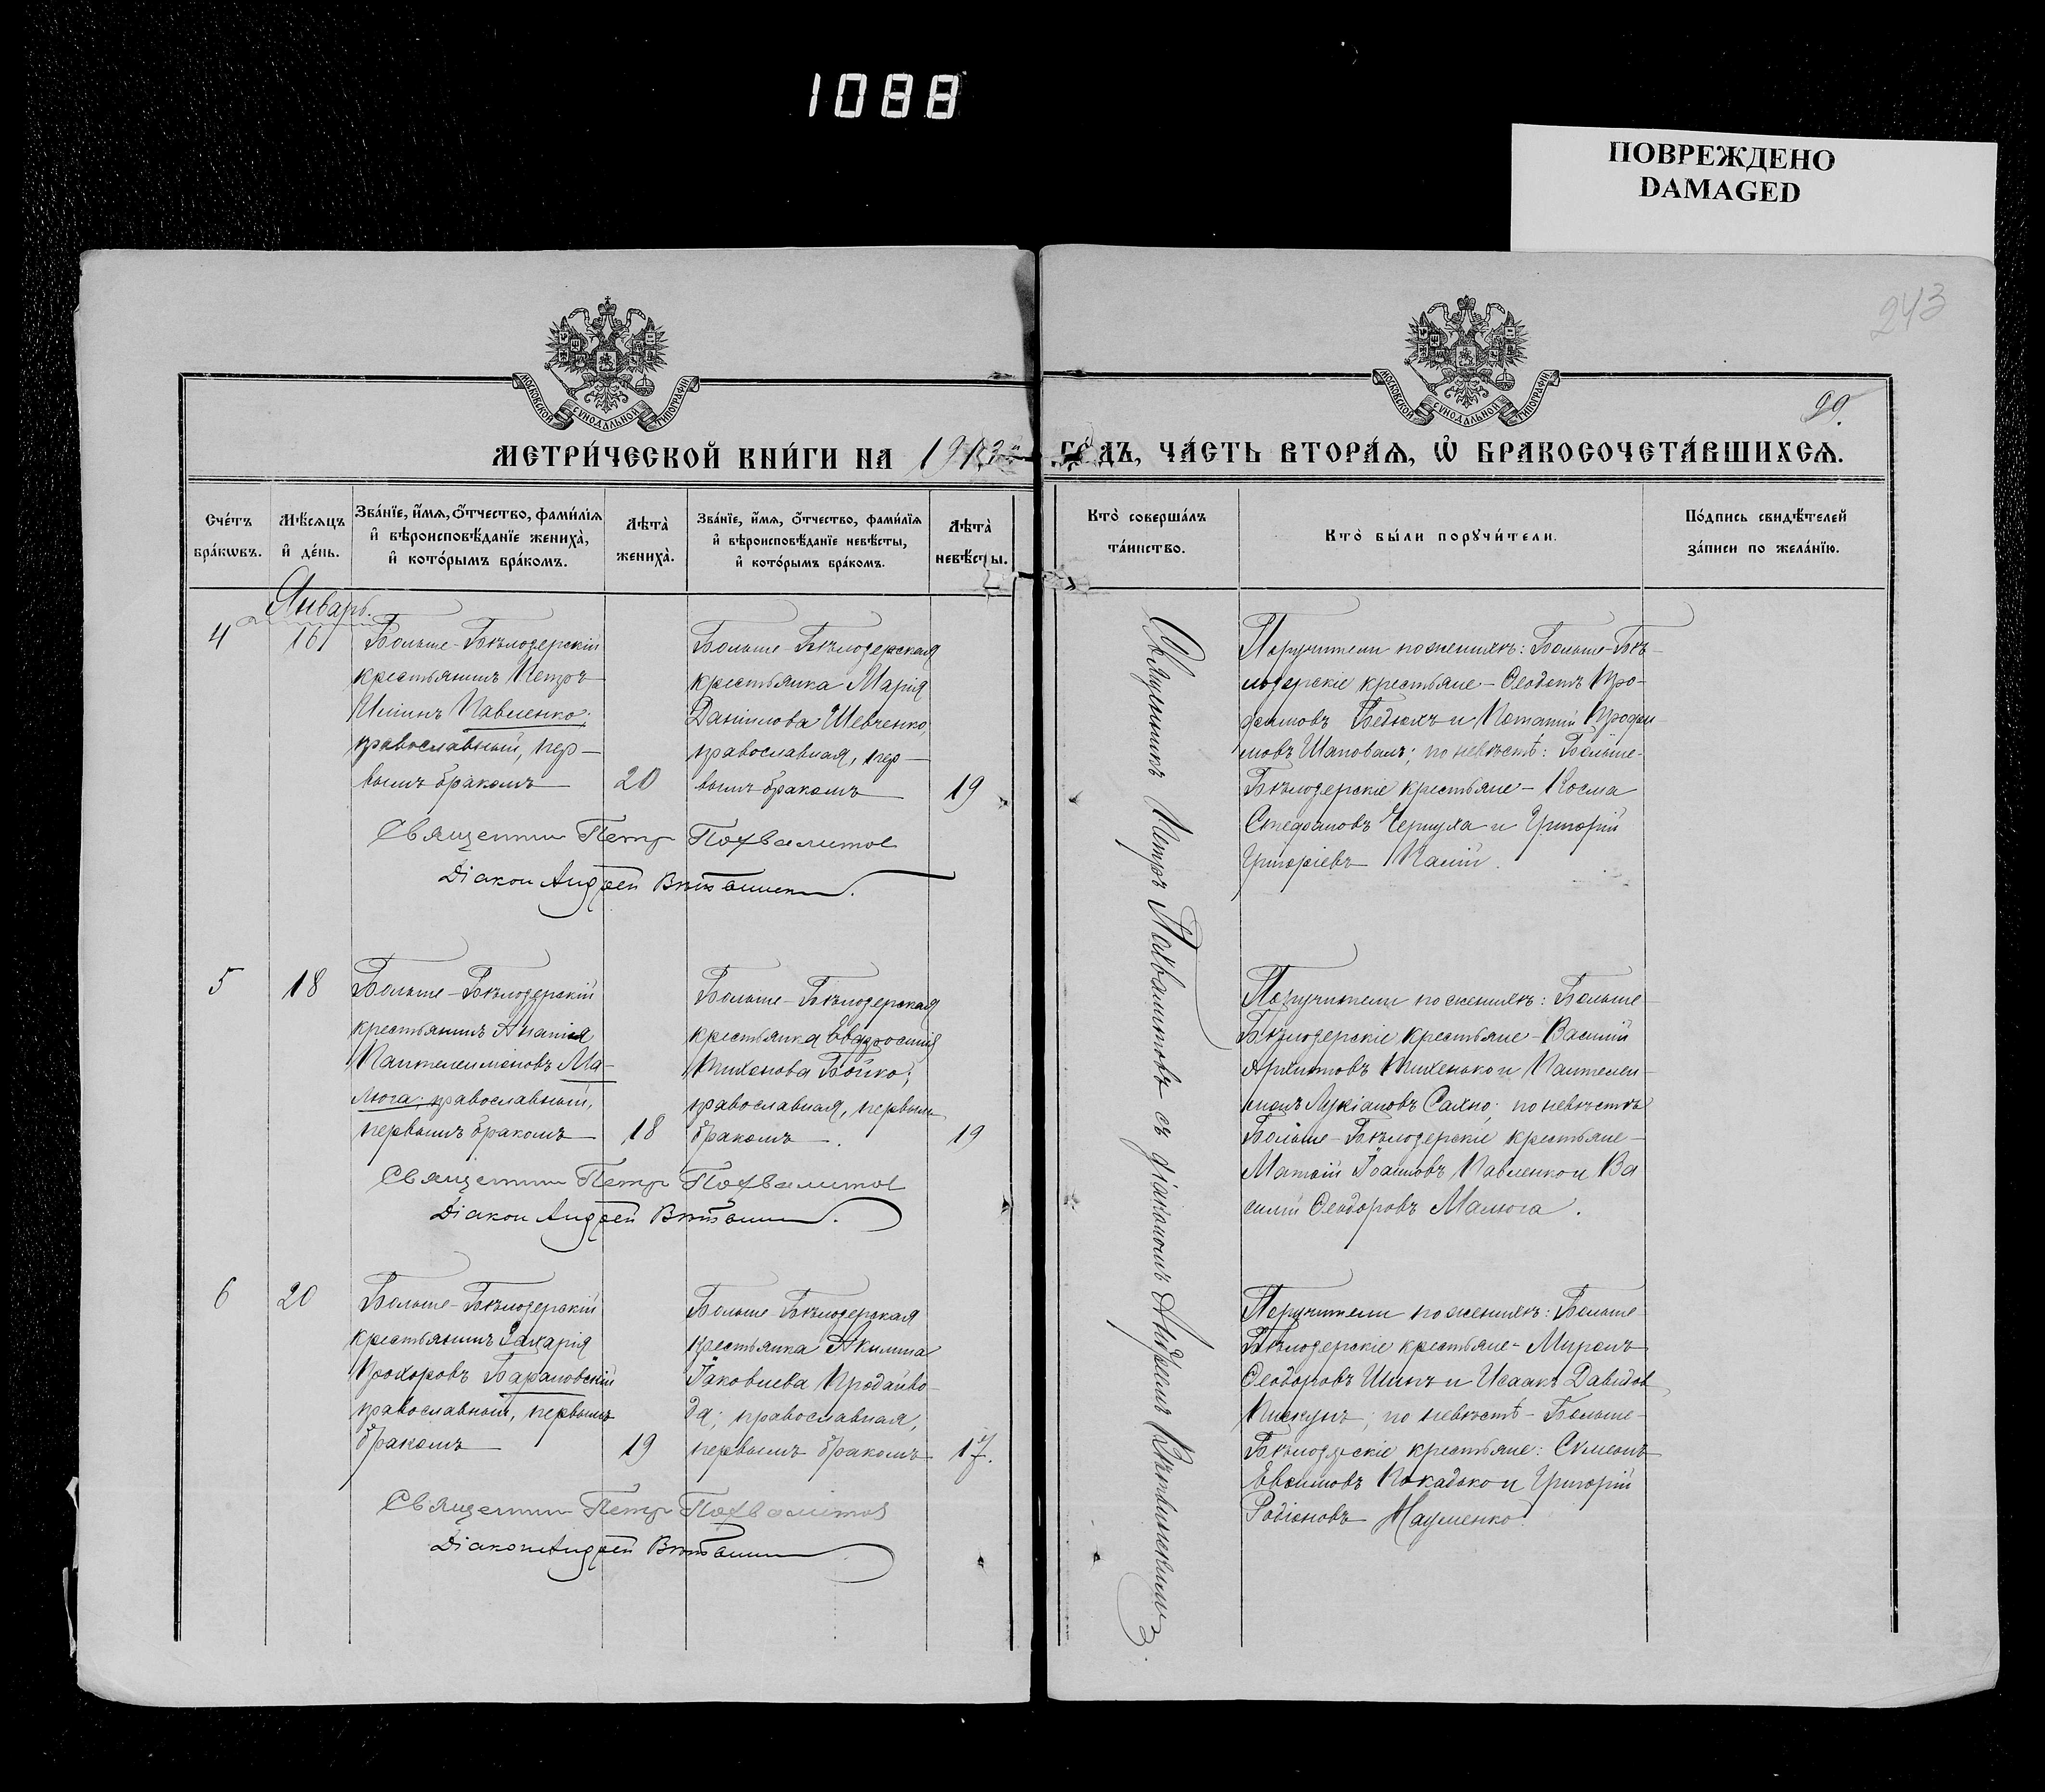 1088
ПОВРЕЖДЕНО
DAMAGED
243
99.
МОСКОВСКОЙ СѴНОДАЛЬНОЙ ТИПОГРАФІИ
МОСКОВСКОЙ СѴНОДАЛЬНОЙ ТИПОГРАФІИ
МЕТРИ́ЧЕСКОЙ КНИ́ГИ НА 1913 ГОДЪ, ЧА́СТЬ ВТОРА́Я, Ѡ҆ БРАКОСОЧЕТА́ВШИХСЯ.
Сче́тъ бра́кωвъ.
Мѣ́сяцъ и҆ де́нь.
Зва́нїе, и҆́мя, ѻ҆́тчество, фами́лїя
и҆ вѣроисповѣ́данїе жениха̀,
и҆ кото́рымъ бра́комъ.
Лѣта̀ жениха̀.
Зва́нїе, и҆́мя, ѻ҆́тчество, фами́лїя
и҆ вѣроисповѣ́данїе невѣ́сты,
и҆ кото́рымъ бра́комъ.
Лѣта̀ невѣ́сты.
Кто̀ соверша́лъ
та́инство.
Кто̀ бы́ли порꙋчи́тели.
По́дпись свидѣ́телей
за́писи по жела́нїю.
Январь.
4
16
Больше-Бѣлозерскій
крестьянинъ Петръ
Иліинъ Павленко;
православный, пер-
вымъ бракомъ
20
Больше-Бѣлозерская
крестьянка Марія
Даніилова Шевченко,
православная, пер-
вымъ бракомъ
19
Священник Петр Похвалитов
Діакон Андрей
Поручители по женихѣ: Больше-Бѣ-
лозерскіе крестьяне - Ѳеодотъ Тро-
фимовъ и Потапій Трофи-
мовъ Шаповалъ; по невѣстѣ: Больше-
Бѣлозерскіе крестьяне - Косма
Стефановъ Чернуха и Григорій
Григоріевъ Палій.
5
18
Больше-Бѣлозерскій
крестьянинъ Ананія
Пантелеимоновъ Ма-
люга; православный,
первымъ бракомъ
18
Больше-Бѣлозерская
крестьянка Евфросинія
Тихонова Бойко;
православная, первым
бракомъ.
19
Священник Петр Похвалитов
Діакон Андрей
Поручители по женихѣ: Больше-
Бѣлозерскіе крестьяне - Василій
Тихенько и Пантелеи-
монъ Лукіановъ Сахно; по невѣстѣ
Больше-Бѣлозерскіе крестьяне -
Матѳій Іоанновъ Павленко и Ва
силій Ѳеодоровъ Малюга.
6
20
Больше-Бѣлозерскій
крестьянинъ Захарія
Прохоровъ Барановскій
православный, первымъ
бракомъ
19
Больше Бѣлозерская
крестьянка Акилина
Іаковлева Продайво-
да; православная,
первымъ бракомъ
17.
Священник Петр Похвалитов
Діакон Андрей
Поручители по женихѣ: Больше-
Бѣлозерскіе крестьяне - Миронъ
Ѳеодоровъ и Исаакъ Давидов
Пискунъ; по невѣстѣ - Больше-
Бѣлозерскіе крестьяне: Сѵмеонъ
и Григорій
Родіоновъ Науменко.
Священникъ Петръ Похвалитовъ съ діакономъ Андреемъ